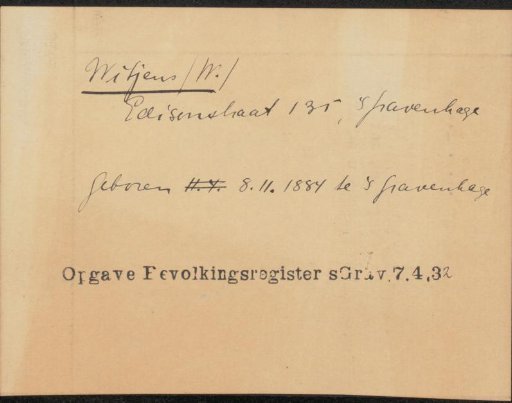 Witjens (W.)
Edisonstraat 135, 's Gravenhage
geboren 11.4. 8.11.1884 te 's Gravenhage
Opgave Bevolkingsregister sGrav. 7.4.32